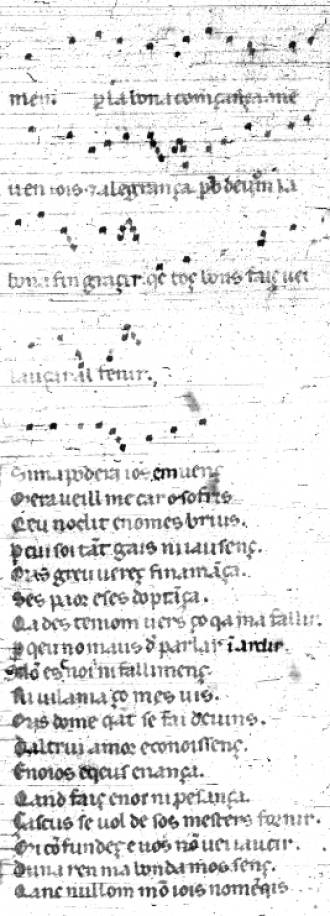 men. p la bona comẽçança me
uen iois ⁊ alegrança. p̱ deuñ la
bona fin graçir. qe toç bons faiç uei
lauçar al fenir.
Si m apodera iois em uenç
Merauеill me car o sofris
Ceu no dic e nomes bruis.
p cui soi tãt gais ni iausenç.
Mas greu uereç fin amãça.
Ses paor e ses doptãça.
Ca des tem om uers ço qa ma fallir.
p qeu no m aus d parlar iardir
es noi ni fallimenç.
Ni uilania ço mes uis.
Mas dome qãt se fai deuins.
Daltrui amor e conoissenç.
Enoios e qeus enança.
Cand faiç enoi ni pesança.
Cascus se uol de sos mesters fornir.
Mi cõfundeç e uos nõ uei iauçir.
Duna ren ma bonda mos senç.
Canc nullom mõ iois nom eqis